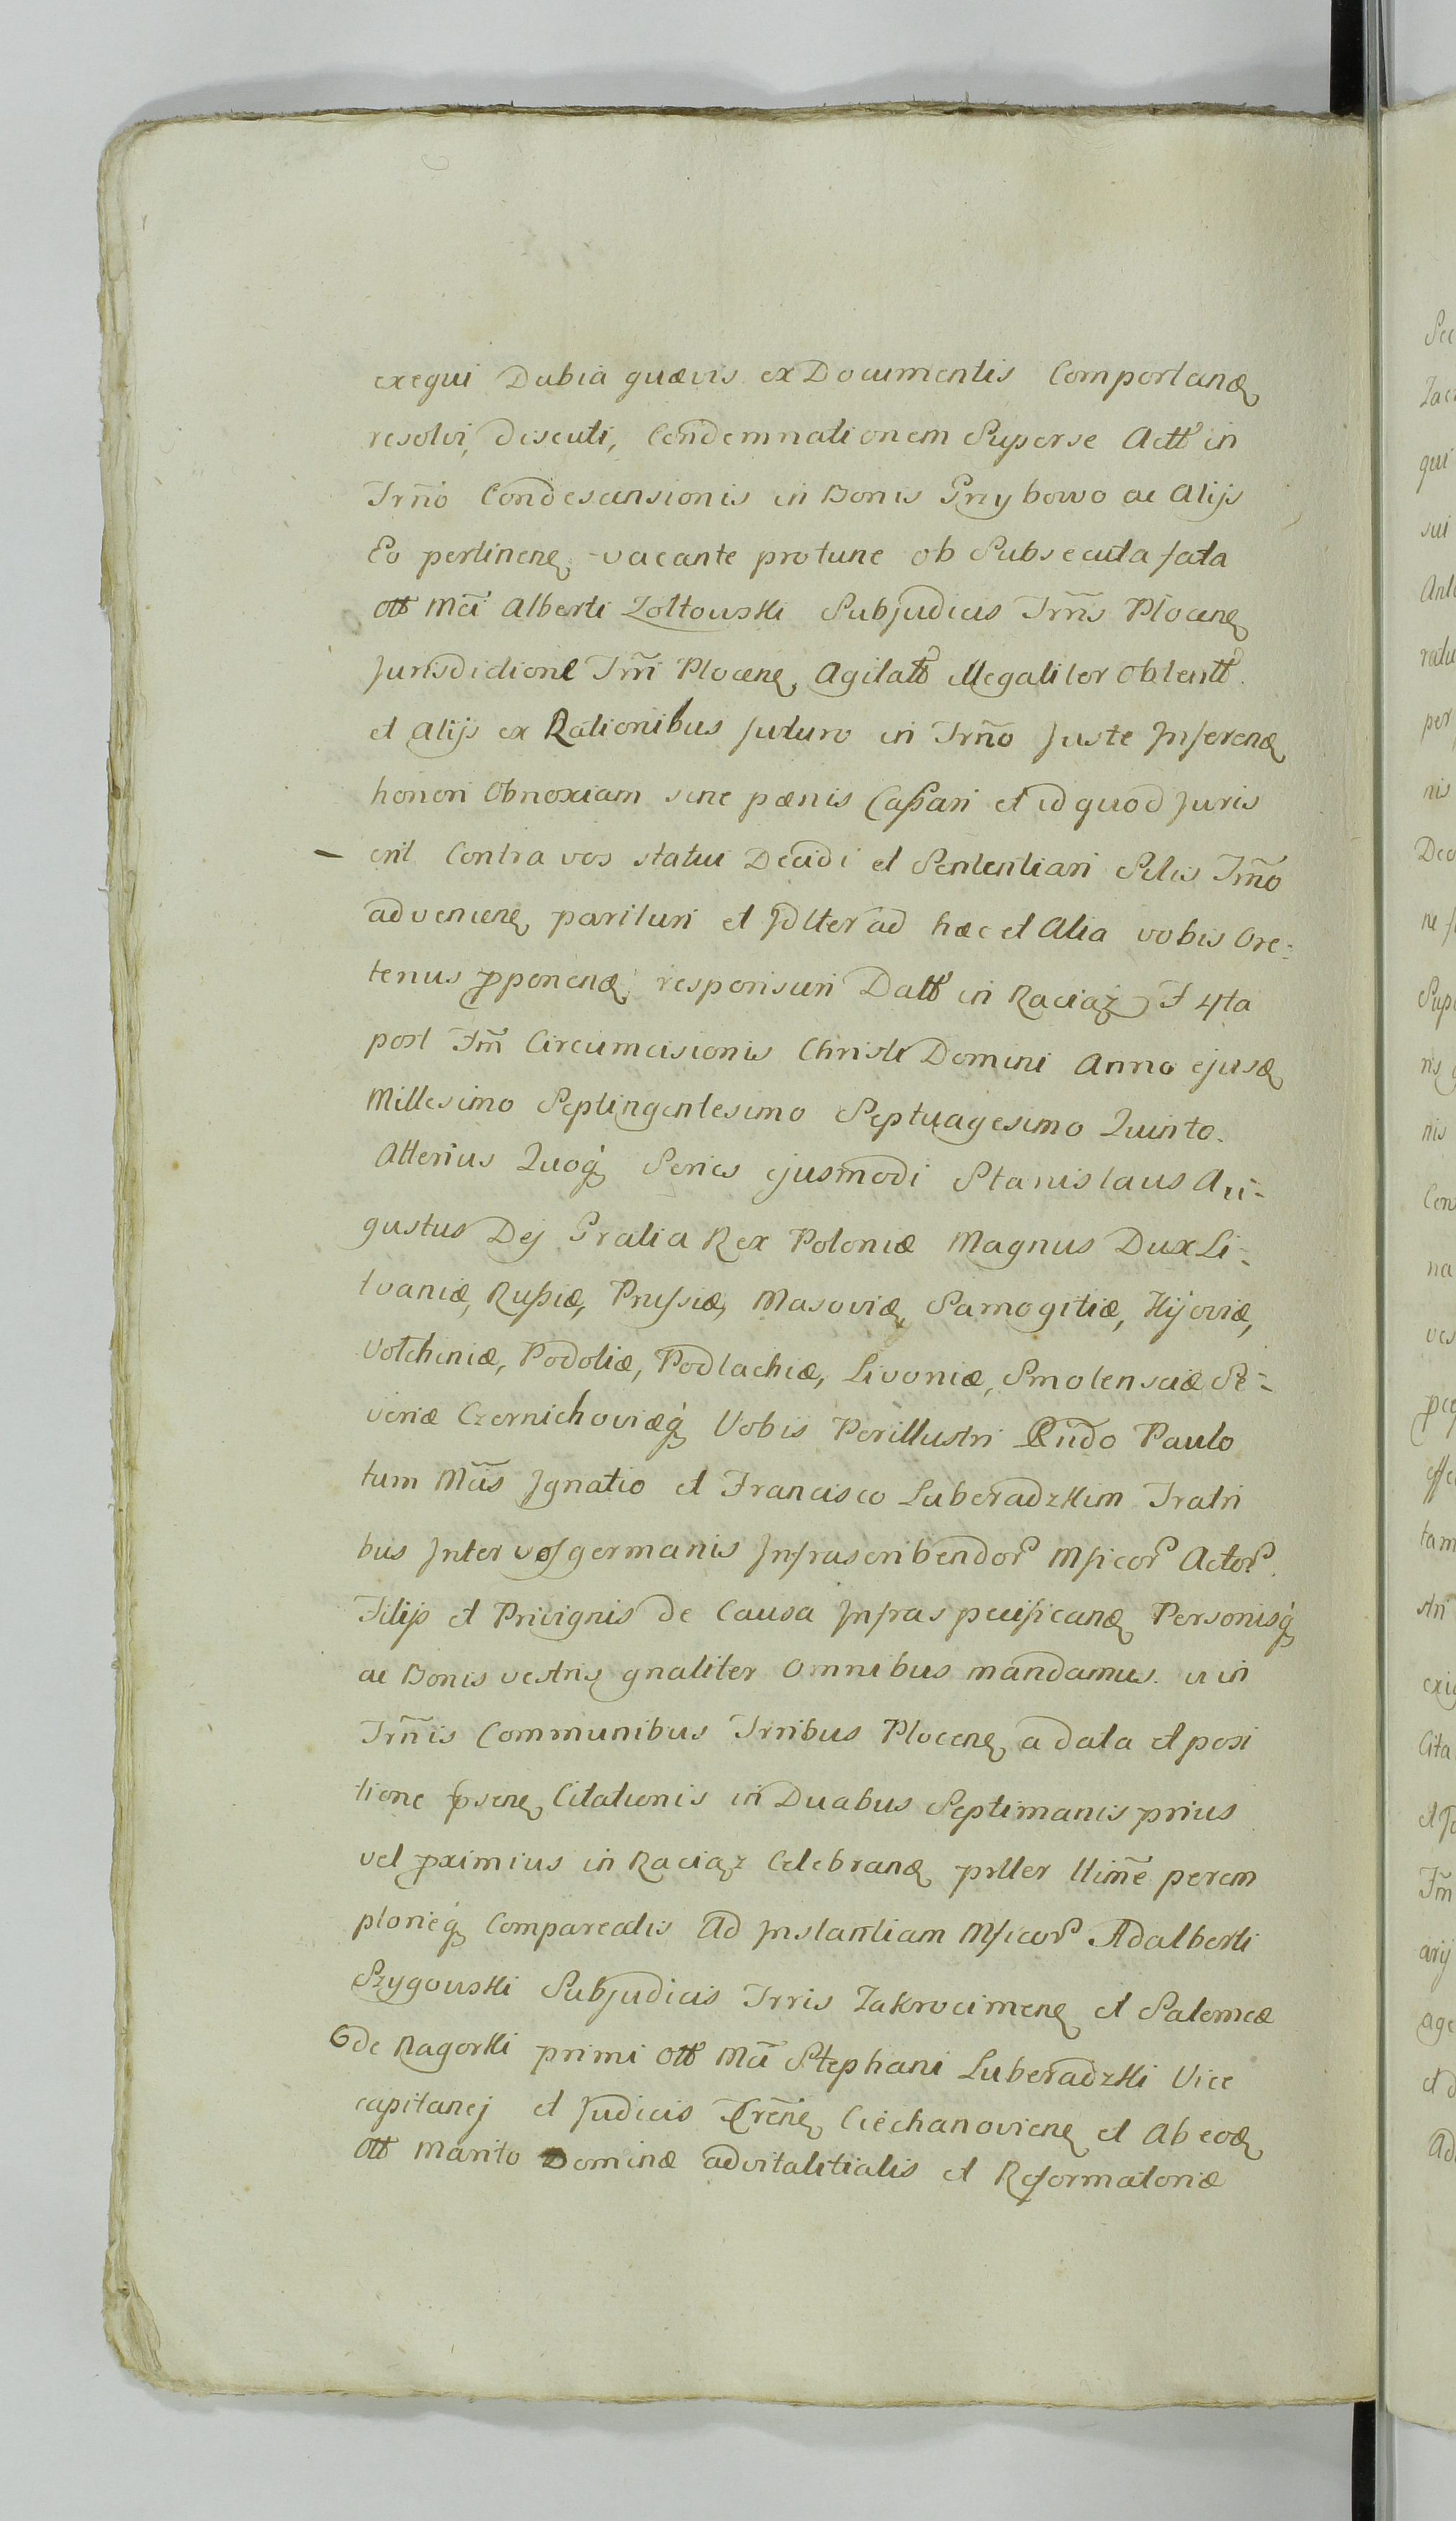 exequi Dubia quævis ex Documentis Comportanꝺ
resolvi, discuti, Condemnationem Superse Actt in
Trno Condescensionis in Bonis Grzybowo ac Alijs
Eo pertinenꝭ vacante protunc ob Subsecuta fata
Ott Mci Alberti Zołtowski Subjudicis Trris Plocenꝭ
Jurisdictione Trri Plocenꝭ Agitatt Illegaliter Obtentt.
et Alijs ex Rationibus futuro in Trno Juste Inferenꝺ
honori Obnoxiam sine pænis Cassari et id quod Juris
erit Contra vos statui Decidi et Sententiari Sitis Trno
advenienꝭ parituri et Jdlter ad hæc et Alia vobis Ore-
tenus pponenꝺ responsuri Datt in Raciąż F 4ta
post Fm Circumcisionis Christi Domini Anno ejusꝺ
Millesimo Septingentesimo Septuagesimo Quinto.
Alterius Quoq Series ejusmodi Stanislaus Au-
gustus Dej Gratia Rex Poloniæ Magnus Dux Li-
tvaniæ, Russiæ, Prussiæ, Masoviæ, Samogitiæ, Kijoviæ,
Volchiniæ, Podoliæ, Podlachiæ, Livoniæ, Smolensciæ Se-
veriæ Czernichoviæq Vobis Perillustri Rndo Paulo
tum Mcis Ignatio et Francisco Luberadzkim Fratri
bus Inter vos germanis Infrascribendor Mficor Actor.
Filijs et Privignis de Causa Infraspecificanꝺ Personisq
ac Bonis vestris gnaliter Omnibus mandamus. ut in
Trnis Communibus Trribus Plocenꝭ a data et posi
tione psenꝭ Citationis in Duabus Septimanis prius
vel pximius in Raciąz Celebranꝺ prller llime perem
ptorieq Compareatis Ad Instantiam Mficor Adalberti
Szygowski Subjudicis Trris Zakrocimenꝭ et Salomeæ
de Nagorki primi Ott Mci Stephani Luberadzki Vice
capitanej et Judicis Crenꝭ Ciechanovienꝭ et Ab eoꝺ
Ott Marito Dominæ advitalitialis et Reformatoriæ